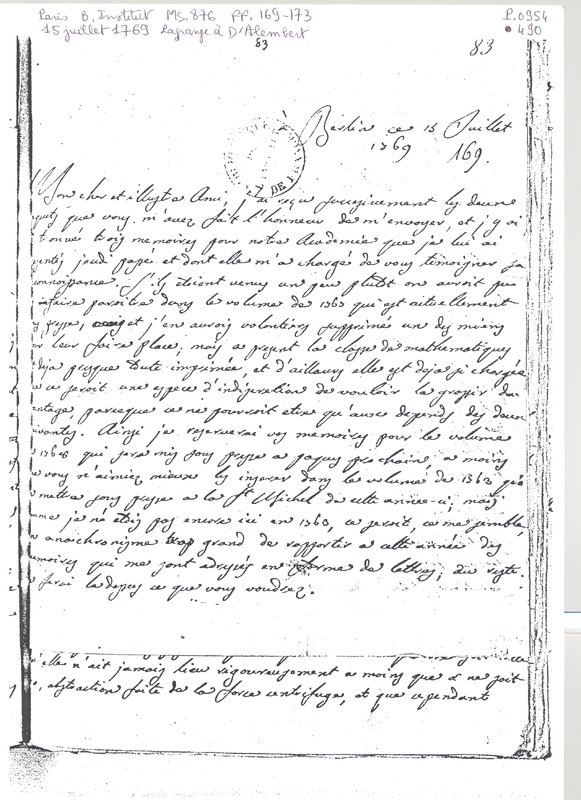 Paris B. Institut Ms. 876 pp. 169-173
P.0954
15 juillet 1769 Lagrange à D'Alembert
• 490
83
83
Berlin ce 15 Juillet
1769
169.
Mon cher et illustre Ami, j'ai reçu successivement les deux
que vous m'avez fait l'honneur de m'envoyer, et j'y ai
trouvé trois memoires pour notre Academie que je lui ai
jeudi passé et dont elle m'a chargé de vous témoigner sa
S'ils étoient venus un peu plutot on auroit pu
faire paroitre dans le volume de 1763 qui est actuellement
presse, et j'en aurois volontiers supprimé un des miens
leur faire place, mais a present la classe de mathematiques
deja presque toute imprimée, et d'ailleurs elle est deja si chargée
ce seroit une espece d'indiscretion de vouloir la grossir
parceque ce ne pourroit etre qu'aux depends des deux
Ainsi je reserverai vos memoires pour le volume
qui sera mis sous presse a paques prochain, a moins
vous n'aimiez mieux les inserer dans le volume de 1763
mettra sous presse a la St Michel de cette année-ci; mais
je n'étois pas encore ici en 1763, ce seroit, ce me semble,
anachronisme trop grand de rapporter a cette année des
qui me sont adressés en forme de lettres; au reste
ferai la-dessus ce que vous voudrez.
elle n'ait jamais lieu rigoureusement a moins que ne soit
abstraction faite de la force centrifuge, et que cependant